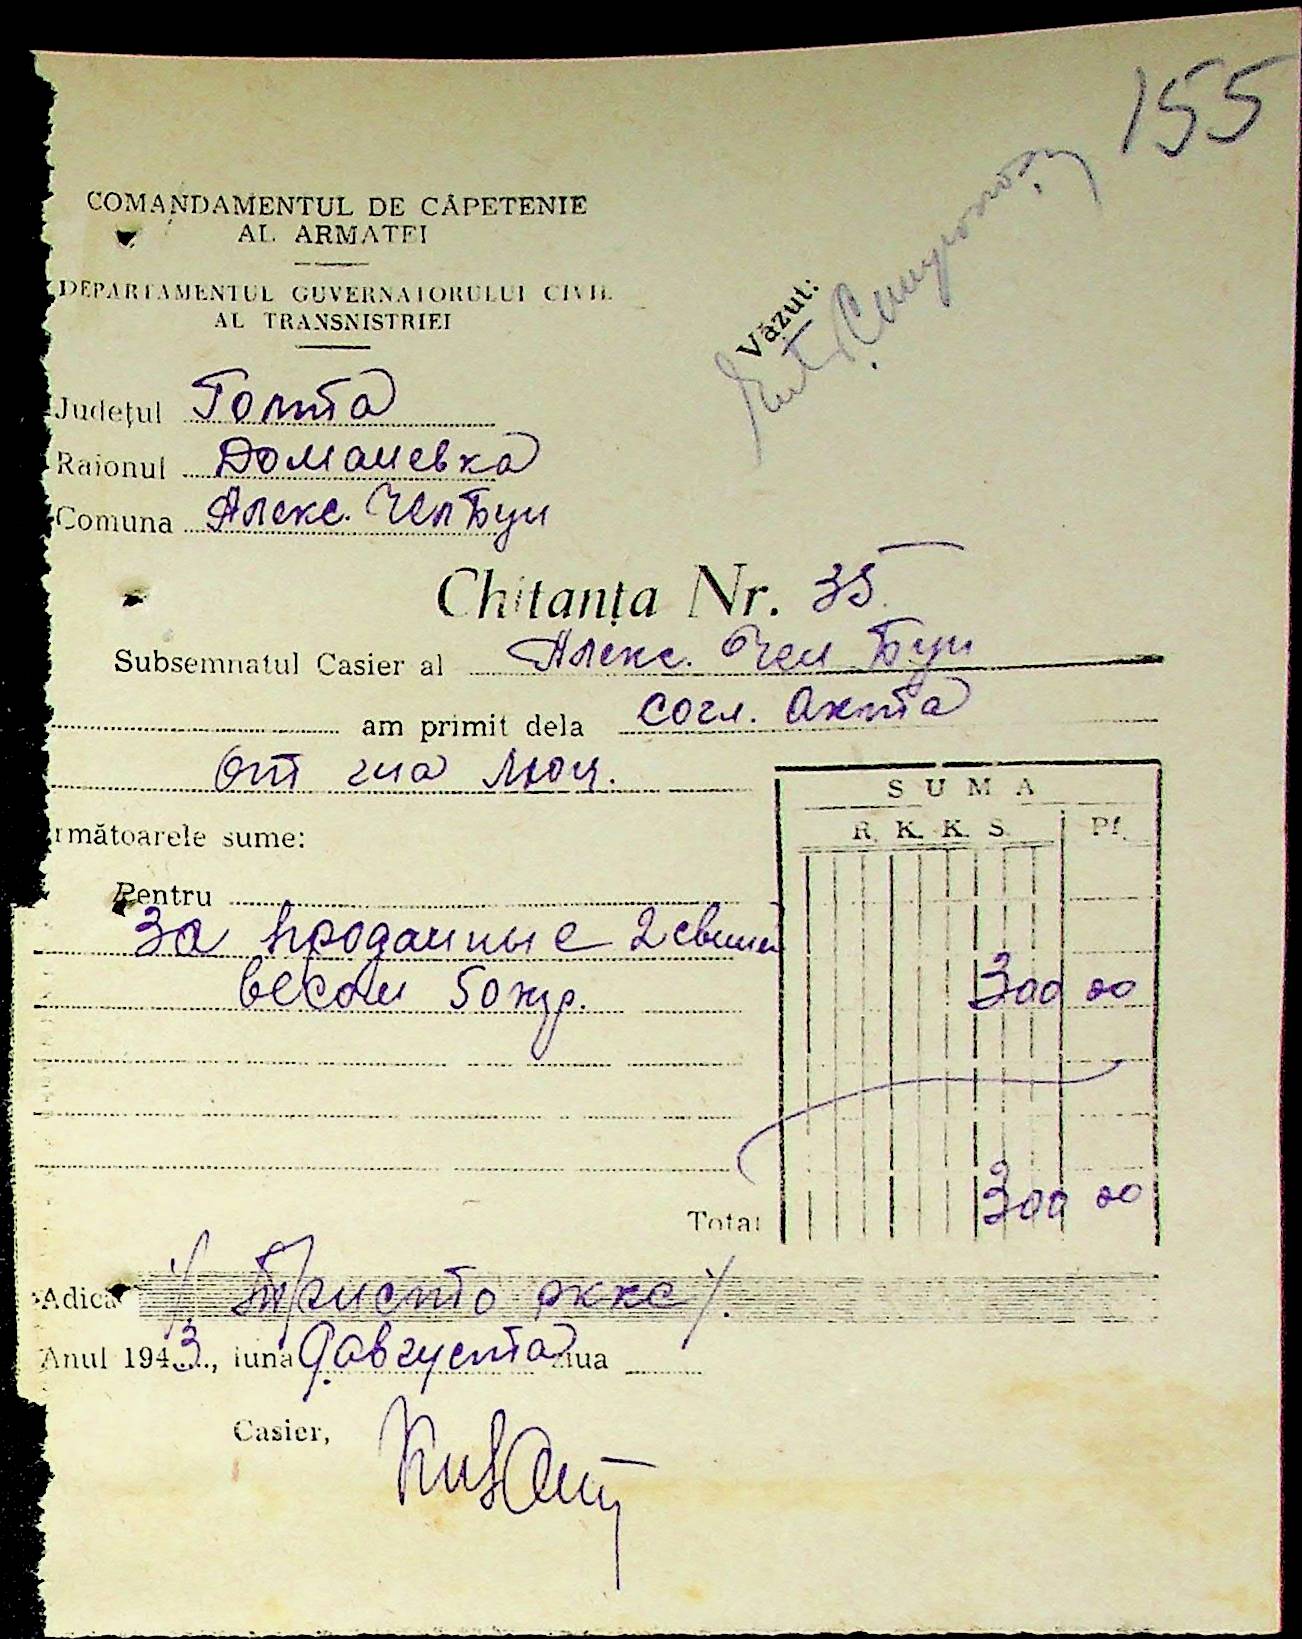 155
COMANDAMENTUL DE CĂPETENIE
AL ARMATEI
DEPARTAMENTUL GUVERNATORULUI CIVIL
AL TRANSNISTRIEI
Văzut:
Județul Голта
Raionul Доманевка
Comuna Алекс.
Chitanța Nr. 35
Subsemnatul Casier al Алекс.
am primit dela согл. акта
от
rmătoarele sume:
SUMA
R. K. K. S. Pf.
Pentru
За проданные 2 свиньи
весом 50 кгр. 300 00
Total 300 00
Adică / Тристо ркке /.
Anul 1943., luna 9 августа ziua
Casier,